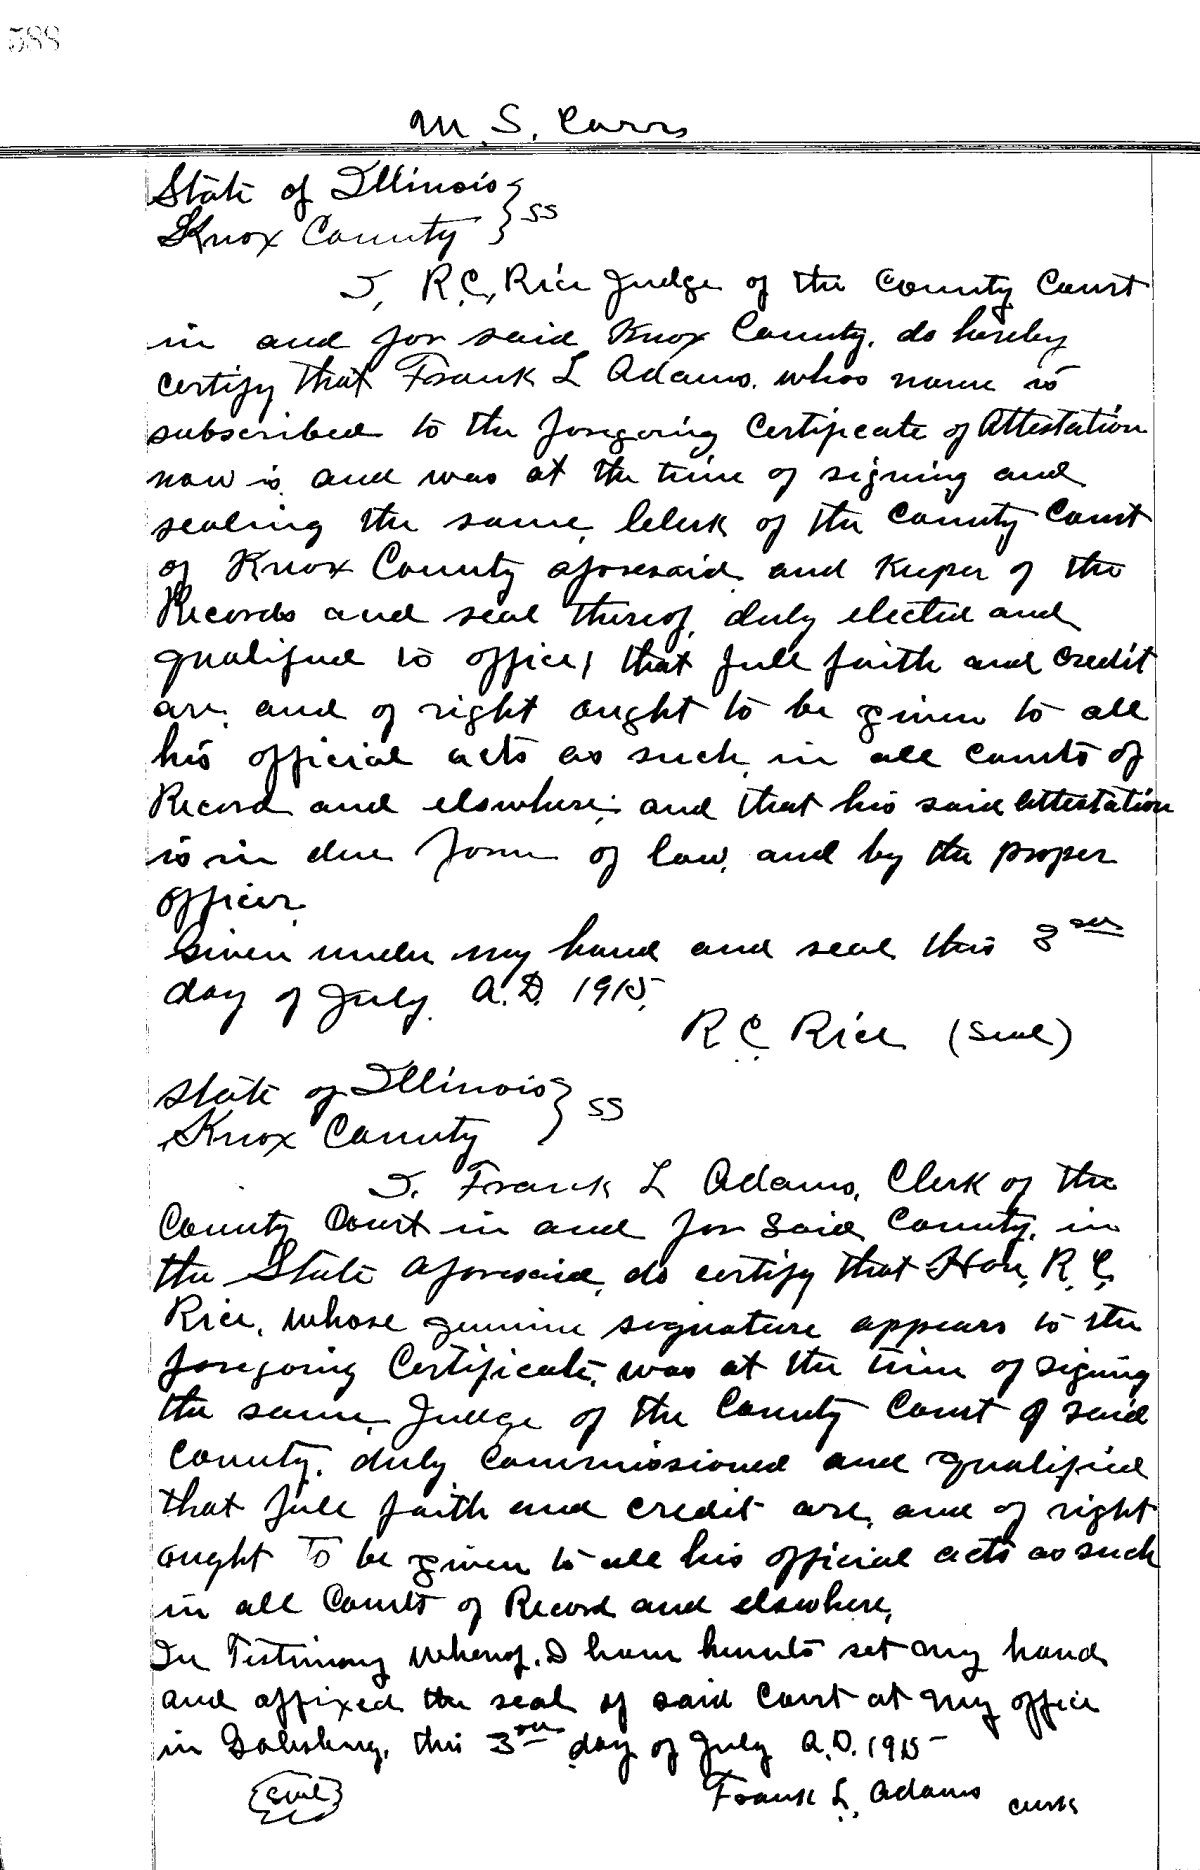 588
M. S. Carrs
State of Illinois } ss
Knox County }
I, R. C. Rice Judge of the County Court
in and for said Knox County, do hereby
certify that Frank L Adams, whos name is
subscribed to the foregoing Certificate of Attestation
now is, and was at the time of signing and
sealing the same, Clerk of the County Court
of Knox County aforesaid, and Keeper of the
Records and seal thereof, duly elected and
qualified to office, that full faith and credit
are, and of right ought to be given to all
his official acts as such, in all courts of
Record and elsewhere; and that his said attestation
is in due form of law, and by the proper
officer.
Given under my hand and seal this 3rd
day of July, A.D. 1915,
R. C. Rice (Seal)
State of Illinois } ss
Knox County }
I, Frank L Adams, Clerk of the
County Court in and for said County, in
the State aforesaid, do certify that Hon, R. C.
Rice, whose genuine signature appears to the
foregoing Certificate, was at the time of signing
the same, Judge of the County Court of said
County, duly commissioned and qualified
that full faith and credit are, and of right
ought to be given to all his official acts as such
in all Courts of Record and elsewhere,
In Testimony Whereof, I have hereunto set my hand
and affixed the seal of said Court at my office
in Galesburg, this 3rd day of July A.D. 1915
(Seal) Frank L. Adams Clerk